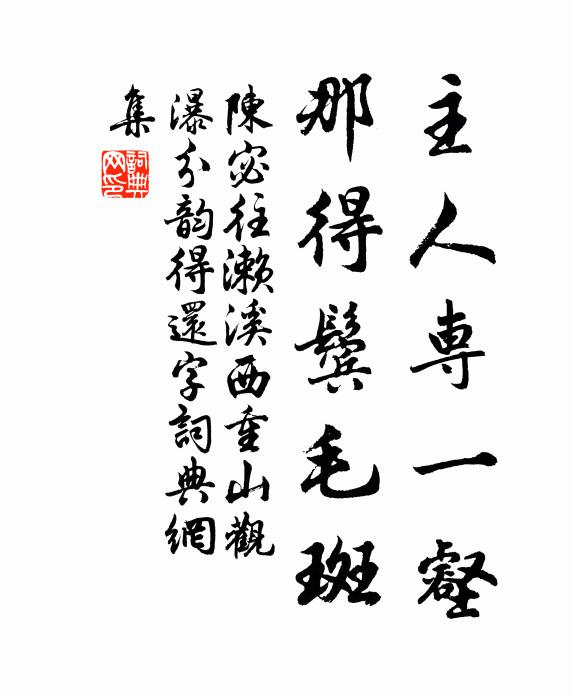 主人專一壑
那得鬓毛斑
陳宓往瀨溪西重山觀
瀑分韵得還字詞典網
集
詞典网印